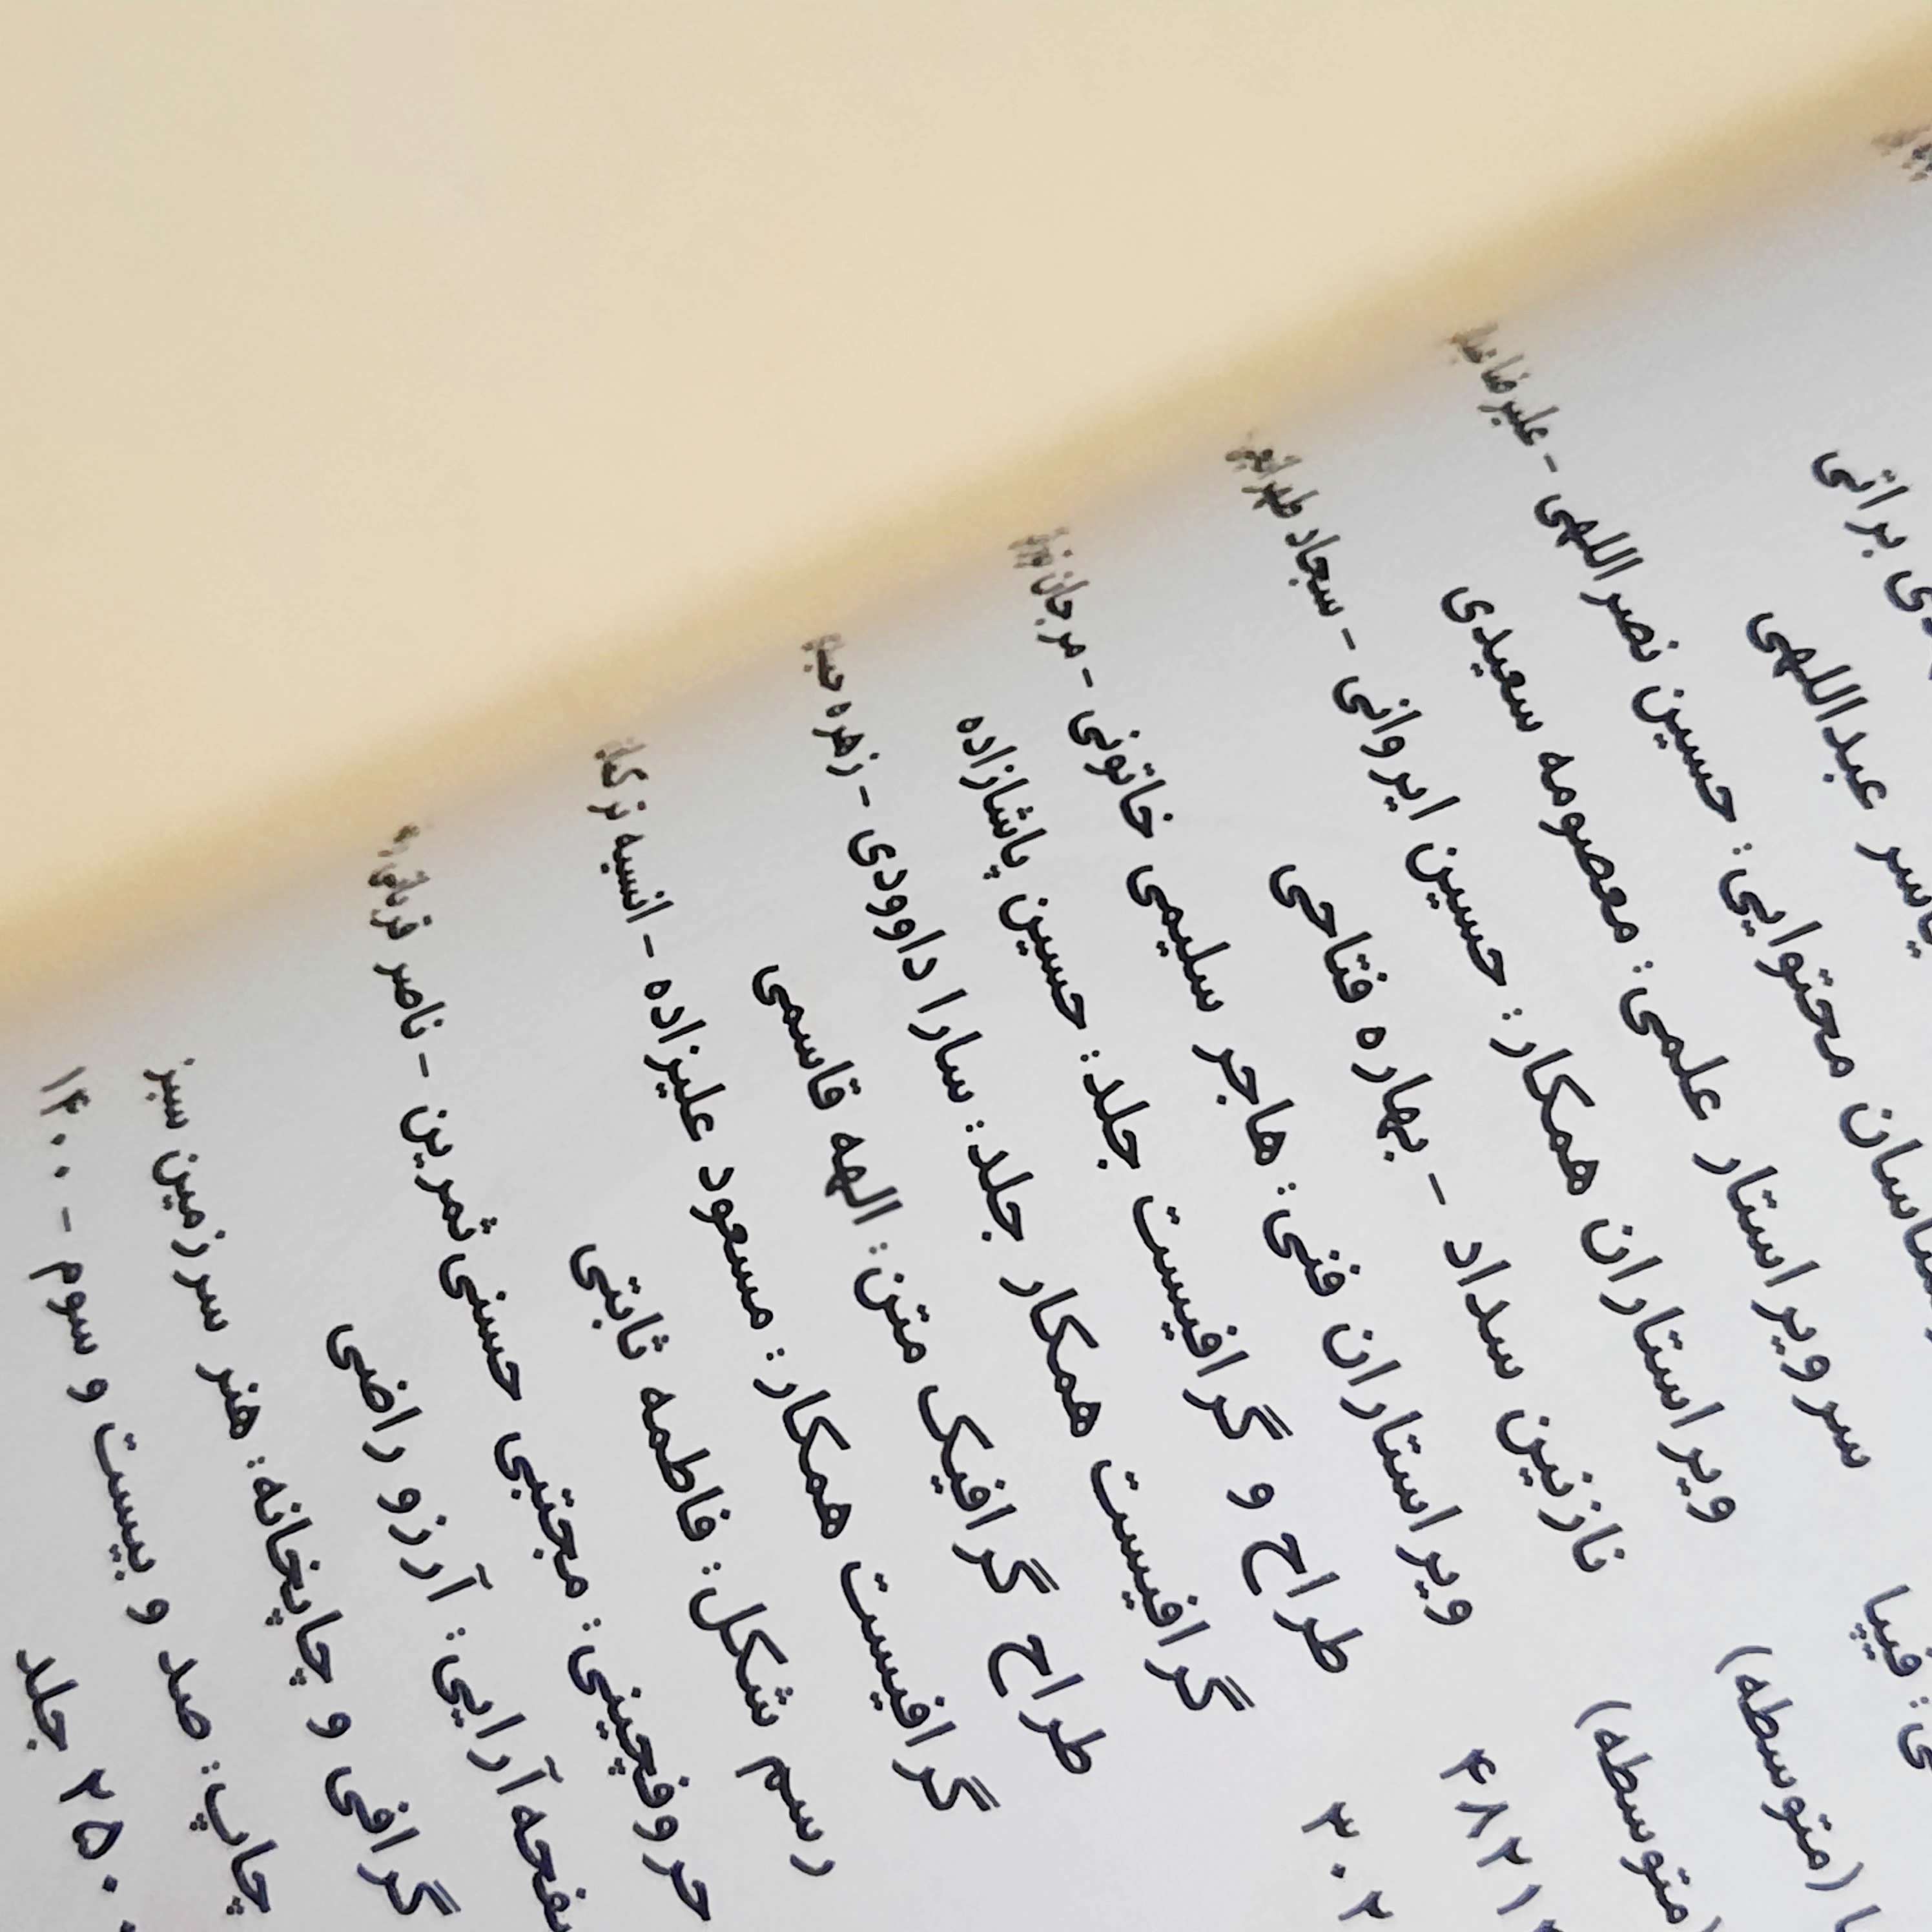 برائی
یاسر عبداللهی
محتوایی: حسین نصراللهی - علیرضا
سرویراستار علمی: معصومه سعیدی
ویراستاران همکار: حسین ایروانی - سجاد
نازنین سداد - بهاره فتاحی
ویراستاران فنی: هاجر سلیمی خاتونی - مرجان
طراح و گرافیست جلد: حسین پاشازاده
گرافیست همکار جلد: سارا داوودی - زهره
طراح گرافیک متن: الهه قاسمی
گرافیست همکار: مسعود علیزاده - انسیه
رسم شکل: فاطمه ثابتی
حروفچینی: مجتبی حسنی‌ثمرین - ناصر
صفحه‌آرایی: آرزو راضی
گرافی و چاپخانه: هنر سرزمین سبز
چاپ: صد و بیست و سوم - ۱۴۰۰
جلد
فیپا
(متوسطه)
(متوسطه)
۴۸۲۱
۳۰۲